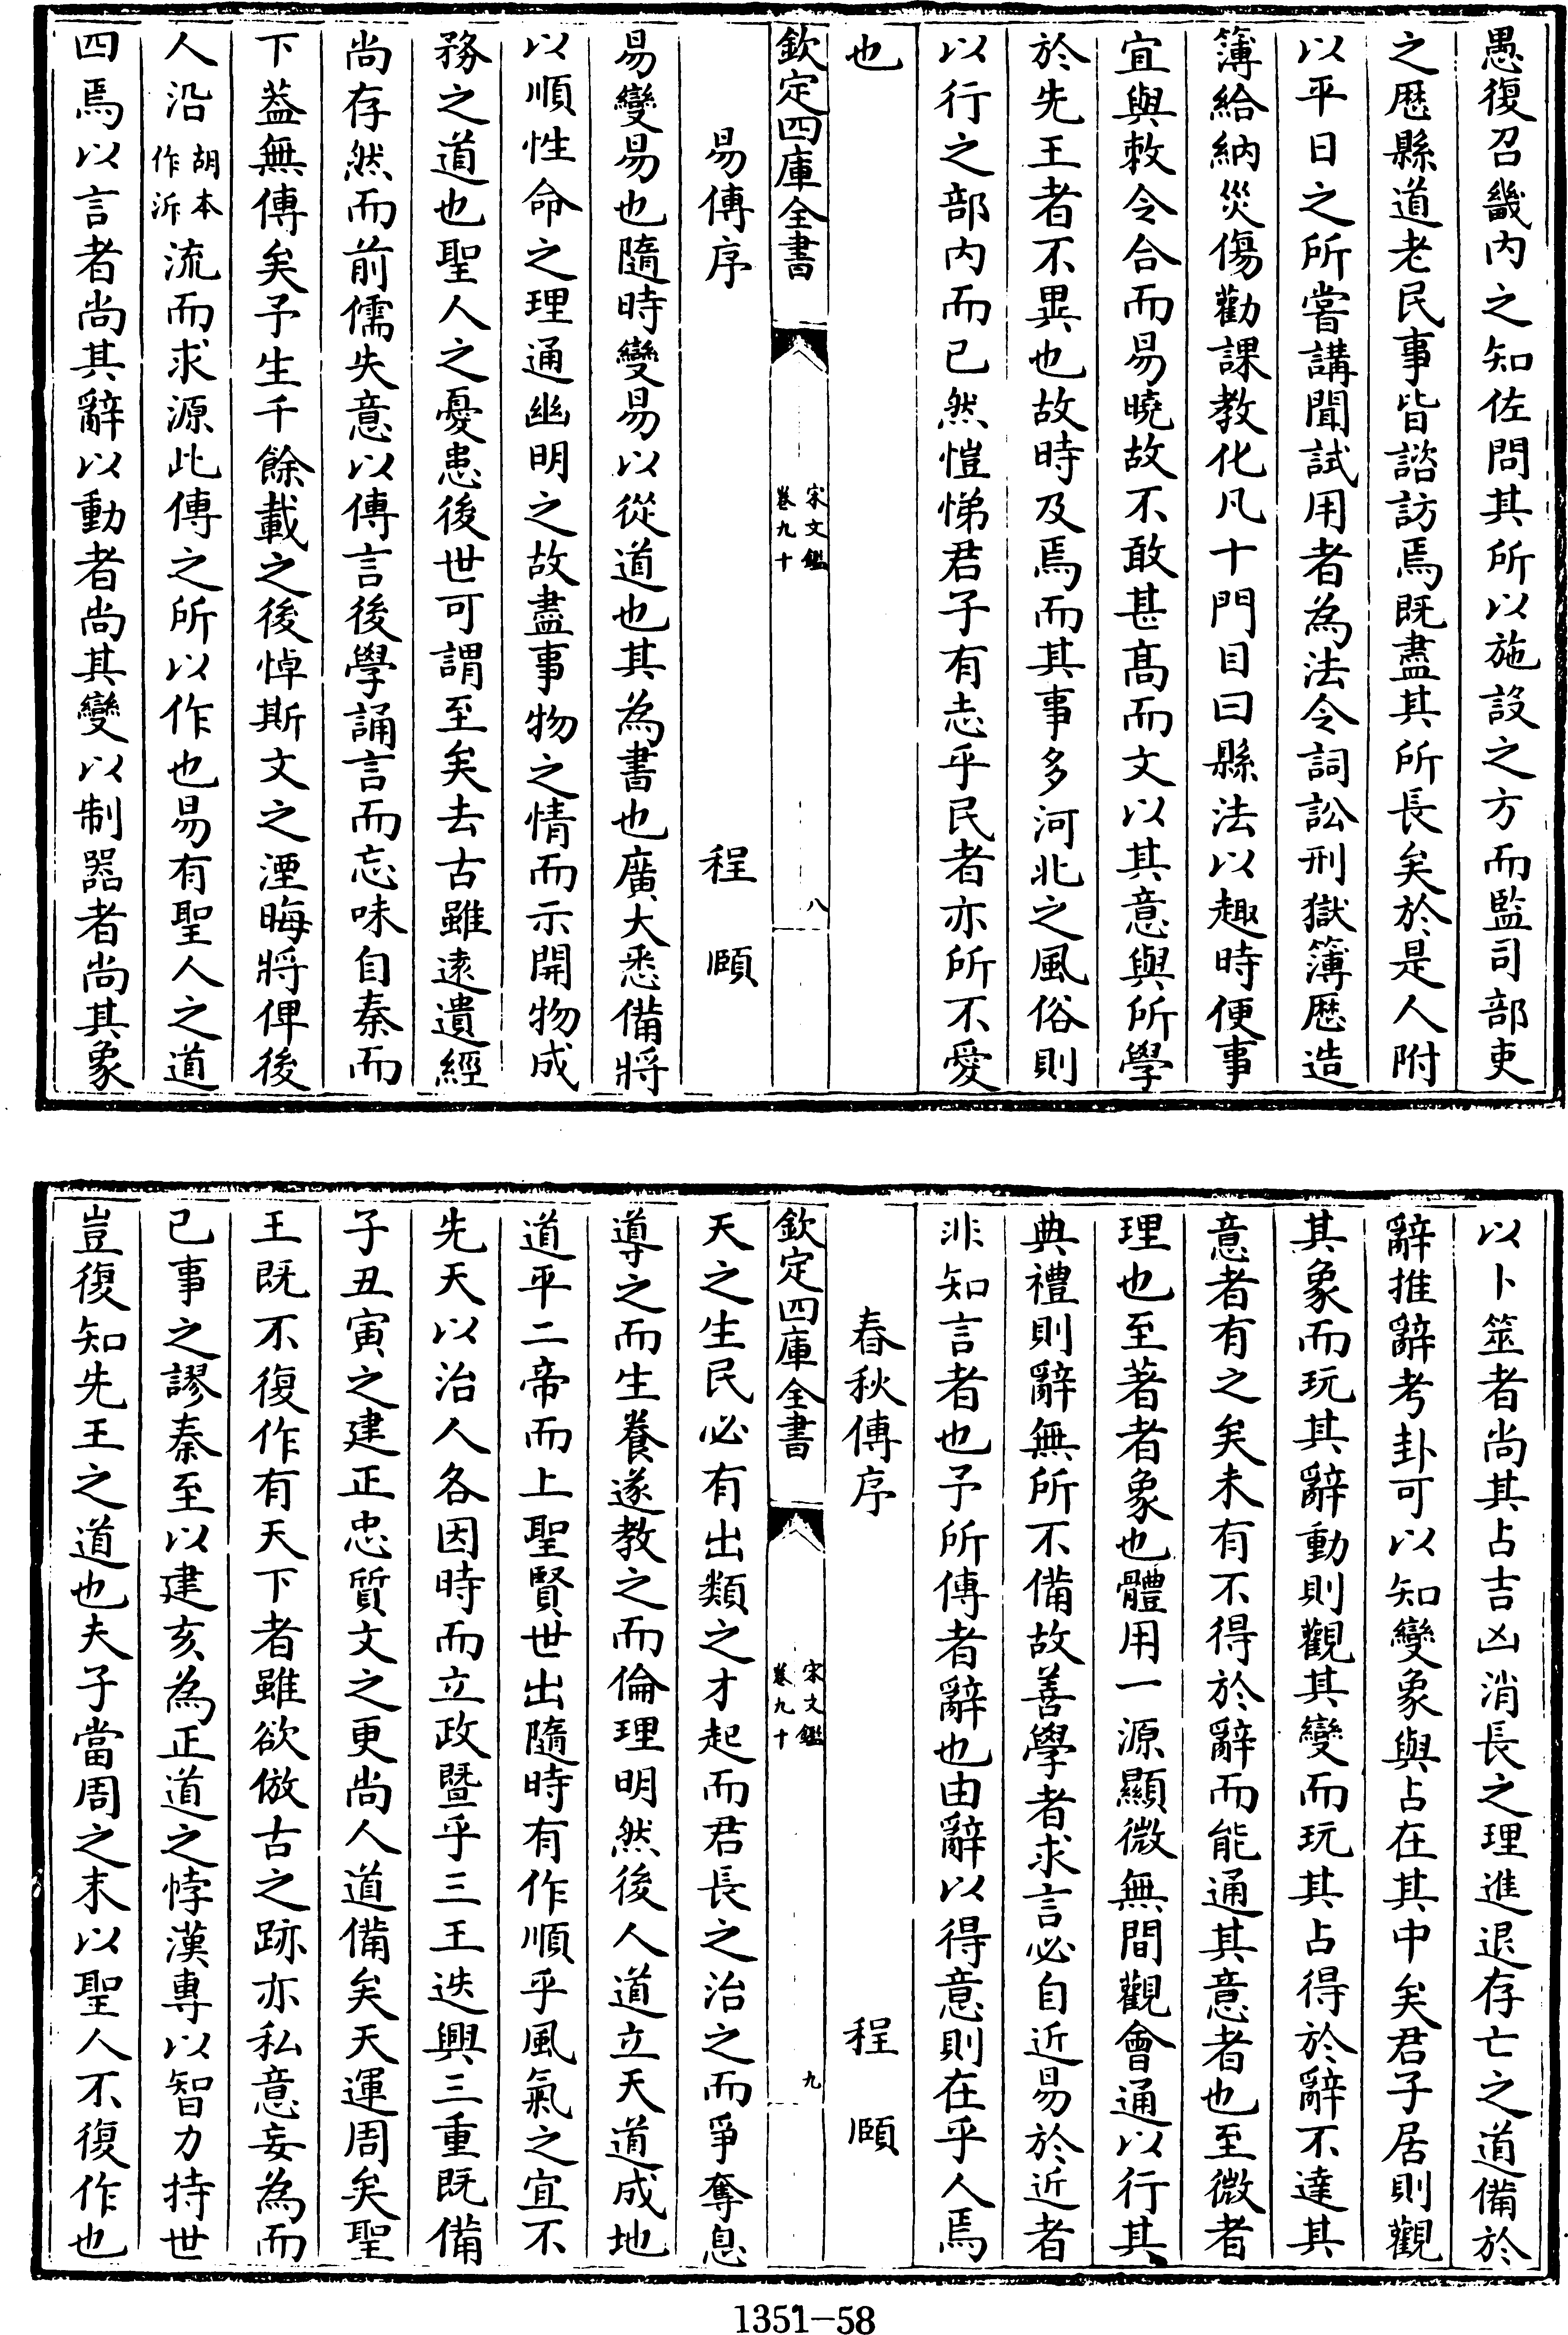 愚復召畿内之知佐問其所以施設之方而監司部吏
之歴縣道老民事皆諮訪焉既盡其所長矣於是人附
以平日之所嘗講聞試用者為法令詞訟刑獄簿歴造
簿給納災傷勸課教化凡十門目曰縣法以趣時便事
宜與敕令合而易曉故不敢甚髙而文以其意與所學
於先王者不異也故時及焉而其事多河北之風俗則
以行之部内而已然愷悌君子有志乎民者亦所不愛
也
欽定四庫全書
宋文鑑
卷九十
八
易傳序
程頤
易變易也隨時變易以從道也其為書也廣大悉備將
以順性命之理通幽明之故盡事物之情而示開物成
務之道也聖人之憂患後世可謂至矣去古雖逺遺經
尚存然而前儒失意以傳言後學誦言而忘味自秦而
下葢無傳矣予生千餘載之後悼斯文之湮晦將俾後
人沿胡本作泝流而求源此傳之所以作也易有聖人之道
四焉以言者尚其辭以動者尚其變以制器者尚其象
以卜筮者尚其占吉凶消長之理進退存亡之道備於
辭推辭考卦可以知變象與占在其中矣君子居則觀
其象而玩其辭動則觀其變而玩其占得於辭不達其
意者有之矣未有不得於辭而能通其意者也至微者
理也至著者象也體用一源顯微無間觀會通以行其
典禮則辭無所不備故善學者求言必自近易於近者
非知言者也予所傳者辭也由辭以得意則在乎人焉
春秋傳序
程頤
欽定四庫全書
宋文鑑
卷九十
九
天之生民必有出類之才起而君長之治之而爭奪息
導之而生養遂教之而倫理明然後人道立天道成地
道平二帝而上聖賢世出隨時有作順乎風氣之宜不
先天以治人各因時而立政暨乎三王迭興三重既備
子丑寅之建正忠質文之更尚人道備矣天運周矣聖
王既不復作有天下者雖欲倣古之跡亦私意妄為而
已事之謬秦至以建亥為正道之悖漢專以智力持世
豈復知先王之道也夫子當周之末以聖人不復作也
1351-58